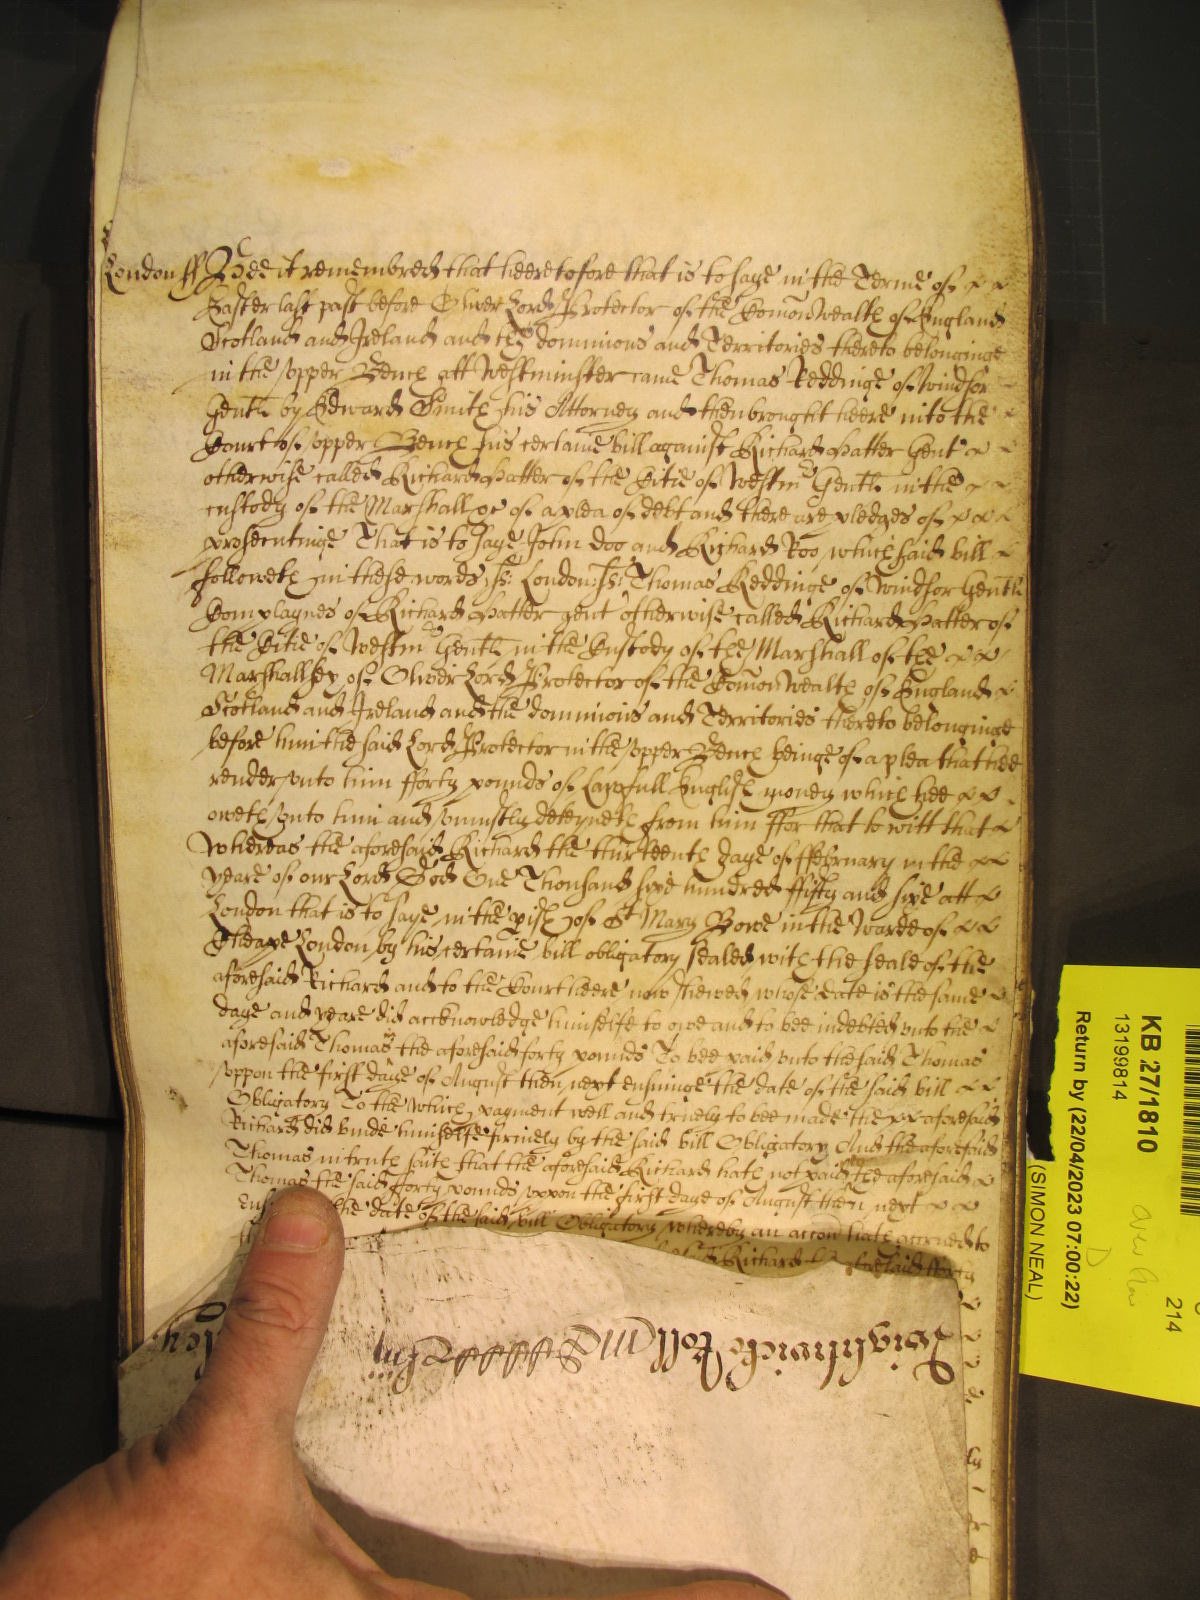 London ss Bee it remembred that heeretofore that is to saye in the Terme of
Easter last past before Oliver Lord Protector of the Comon Wealth of England
Scotland and Ireland and the dominions and Territories thereto belonginge
in the upper Bench att Westminster came Thomas Reddinge of Windsor
Gentl by Edward Smith his Attorney and then brought heere into the
Court of upper Bench his certaine bill against Richard Hatter Gent
otherwise called Richard Hatter of the Citie of Westmr Gentl in the
custody of the Marshall &c of a plea of debt and there are pledges of
prosecutinge That is to saye John Doo and Richard Roo which said bill
followeth in these words ss: London ss: Thomas Reddinge of Windsor Gentl
Complaynes of Richard Hatter gent otherwise called Richard Hatter of
the Citie of Westmr Gentl in the Custody of the Marshall of the
Marshallsey of Oliver Lord Protector of the Comon Wealth of England
Scotland and Ireland and the dominions and Territories thereto belonginge
before him the said Lord Protector in the upper Bench beinge of a plea that hee
render unto him fforty pounds of Lawfull English money which hee
oweth unto him and uniustly deteyneth from him ffor that to witt that
Whereas the aforesaid Richard the thirteenth daye of ffebruary in the
yeare of our Lord God One Thousand sixe hundred ffifty and sixe att
London that is to saye in the pish of St Mary Bowe in the Warde of
Cheape London by his certaine bill obligatory sealed with the seale of the
aforesaid Richard and to the Court heere now shewed whose date is the same
daye and yeare did accknowledge himselfe to owe and to bee indebted unto the
aforesaid Thomas in the aforesaid forty pounds To bee paid unto the said Thomas
uppon the first daye of August then next ensuinge the date of the said bill
Obligatory To the which payment well and truely to bee made the aforesaid
Richard did binde himselfe firmely by the said bill Obligatory And the aforesaid
Thomas in truth saith that the aforesaid Richard hath not paid the aforesaid
Thomas the said fforty pounds uppon the first daye of August then next
the date of the said bill Obligatory whereby an accon hath accrued to
Richard fforty
Roll
KB 271810
13199814
Return by (22/04/2023 07:00:22)
(SIMON NEAL)
214
D